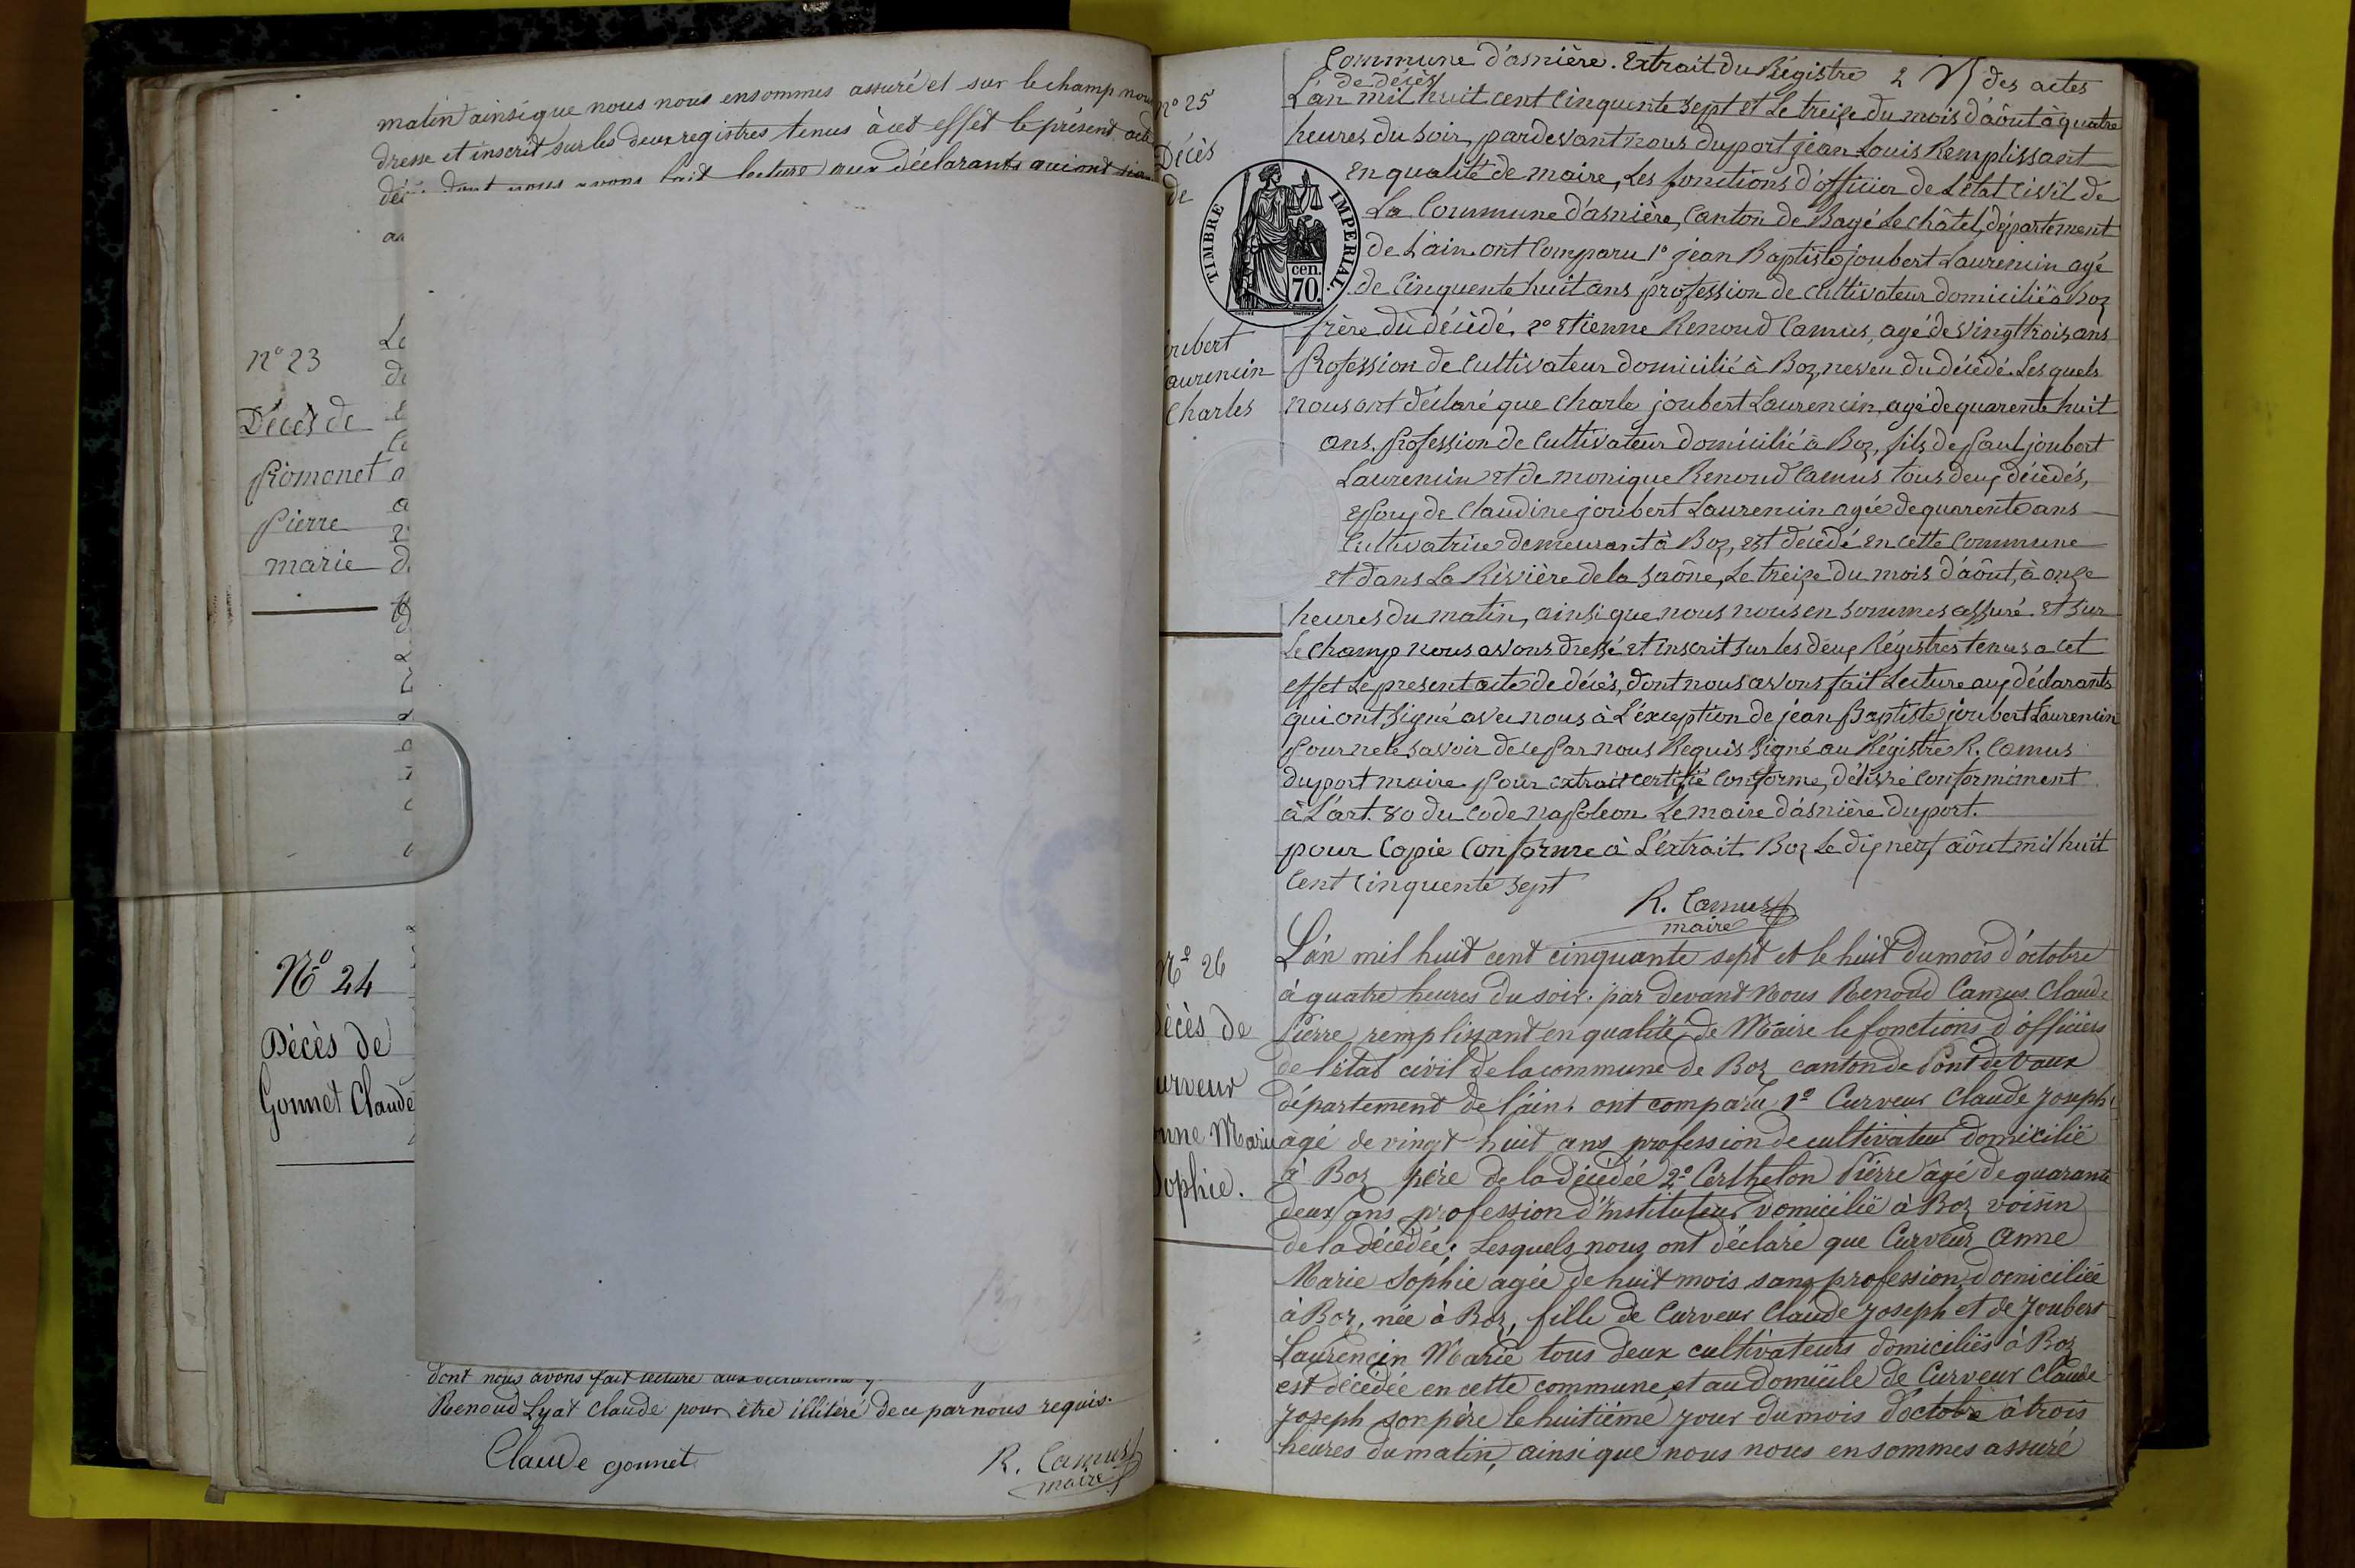 matin ainsi que nous nous ensommes assuré et sur le champ nous
dresse et inscrit sur les deux registres tenus à cet effet le présent acte
dont nous avons fait lecture aux déclarants qui ont
N° 23
Décès de
Piomonet
Pierre
marie
N° 24
Décès de
Gonnet Claude
dont nous avons fait lecture aux
Renoud Lyat Claude pour être illitéré de ce par nous requis.
Claude gonnet
R. Camus
maire
Commune d'asnière. Extrait du Régistre des actes
de décès
n° 25
Décès
de
TIMBRE IMPERIAL
cen.
70.
aurencin
Charles
L'an mil huit cent Cinquente sept et Le treize du mois d'aôut à quatre
heures du soir, pardevant nous duport jean Louis Remplissant
en qualité de maire, Les fonctions d'officier de L'état civil de
La Commune d'asnière, Canton de Bagé Le châtel, département
de L'ain ont Comparu 1° jean Baptiste joubert Laurencin agé
de Cinquente huit ans profession de cultivateur domicilié à Boz
frère du décédé. 2° Etienne Renoud Camus, agé de vingt trois ans
Profession de Cultivateur domicilié à Boz, neveu du décédé. Les quels
nous ont déclaré que Charle joubert Laurencin, agé de quarente huit
ans. Profession de Cultivateur domicilié à Boz, fils de Paul joubert
Laurencin et de monique Renoud Camus tous deux décédés,
Epoux de Claudine joubert Laurencin agée de quarente ans
Cultivatrice demeurant à Boz, est décédé en cette Commune
et dans La Rivière de la Saône, Le treize du mois d'aôut, à onze
heures du matin, ainsi que nous nous en sommes assuré. et sur
Le Champ nous avons dressé et inscrit sur les deux Régistres tenus a cet
effet Le present acte de décès, dont nous avons fait Lecture aux déclarants
qui ont signé avec nous à L'exception de jean Baptiste joubert Laurencin
Pour ne le savoir de ce Par nous Requis signé au Régistre R. Camus
duport maire. Pour extrait certifié Conforme, délivré Conformément
à L'art. 80 du Code napoleon Le maire d'asnière duport.
pour Copie Conforme à L'extrait. Boz Le dix neuf aôut mil huit
Cent Cinquente sept
R. Camus
maire
N° 26
écès de
urveur
nne Marie
ophie.
L'an mil huit cent cinquante sept et le huit du mois d'octobre
à quatre heures du soir. par devant Nous Renoud Camus Claude
Pierre remplissant en qualité de Maire le fonctions d'officiers
de l'état civil de la commune de Boz canton de Pont de Vaux
département de l'ain, ont comparu 1° Curveur Claude Joseph
agé de vingt-huit ans profession de cultivateur domicilié
à Boz père de la décédée 2° Certhelon Pierre agé de quarante
deux ans profession d'Instituteur domicilié à Boz voisin
de la décédée; Lesquels nous ont déclaré que Curveur Anne
Marie Sophie agée de huit mois sans profession, domiciliée
à Boz, née à Boz, fille de Curveur Claude Joseph et de Joubert
Laurencin Marie tous deux cultivateurs domiciliés à Boz
est décédée en cette commune et au domicile de Curveur Claude
Joseph son père le huitième jour du mois d'octobre à trois
heures du matin, ainsi que nous nous en sommes assuré